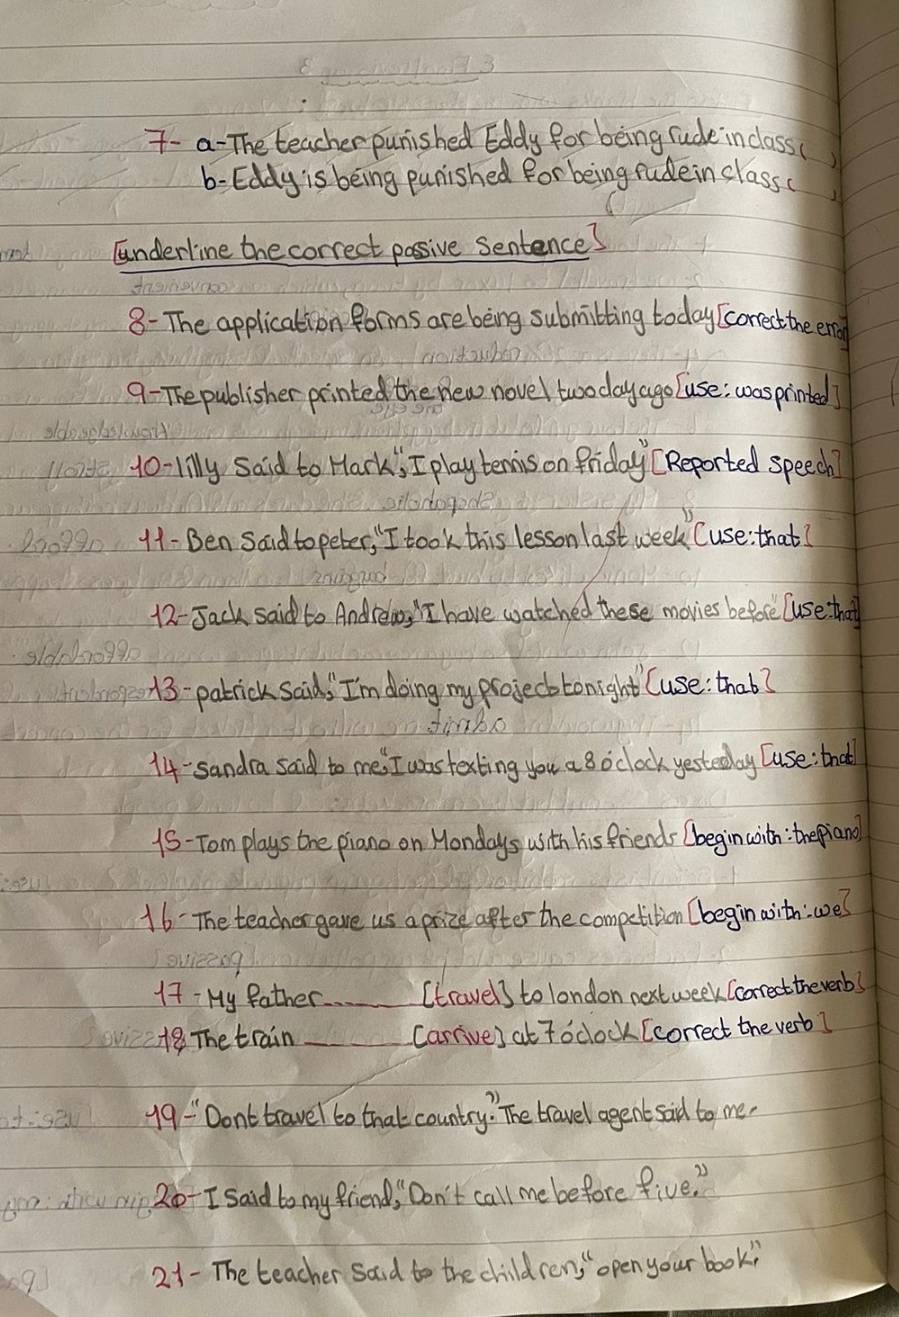 7- a-The teacher punished Eddy for being rude in class ( )
b-Eddy is being punished for being rude in class ( )
[underline the correct passive sentence]
8-The application forms are being submitting today [correct the error
9-The publisher printed the new novel two day ago [use: was printed]
10-lilly said to Mark", I play tennis on friday" [Reported speech]
11-Ben said to peter, "I took this lesson last week" [use: that]
12-Jack said to Andrew, "I have watched these movies before" [use: that]
13-patrick said, "I'm doing my project tonight" [use: that]
14-sandra said to me "I was texting you a 8 o'clock yesteday [use: that]
15-Tom plays the piano on Mondays with his friends [begin with: the piano]
16-The teacher gave us a prize after the competition [begin with: we]
17-My father....... [travel] to london next week [correct the verb]
18 The train ....... [arrive] at 7 o'clock [correct the verb]
19-"Dont travel to that country." The travel agent said to me.
20-I said to my friend, "Don't call me before five."
21-The teacher said to the children, "open your book"